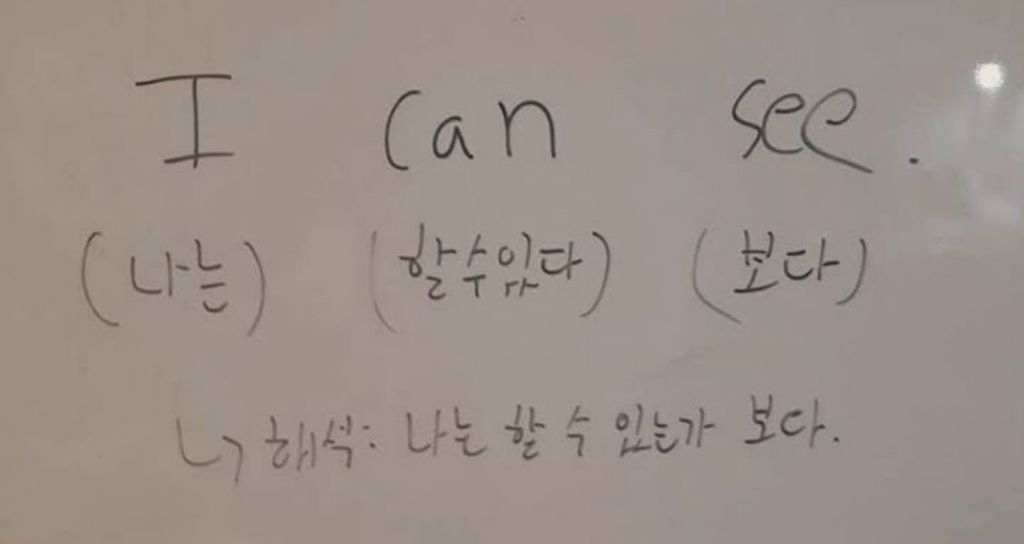 I can see.
(나는) (할수있다) (보다)
↳ 해석: 나는 할 수 있는가 보다.